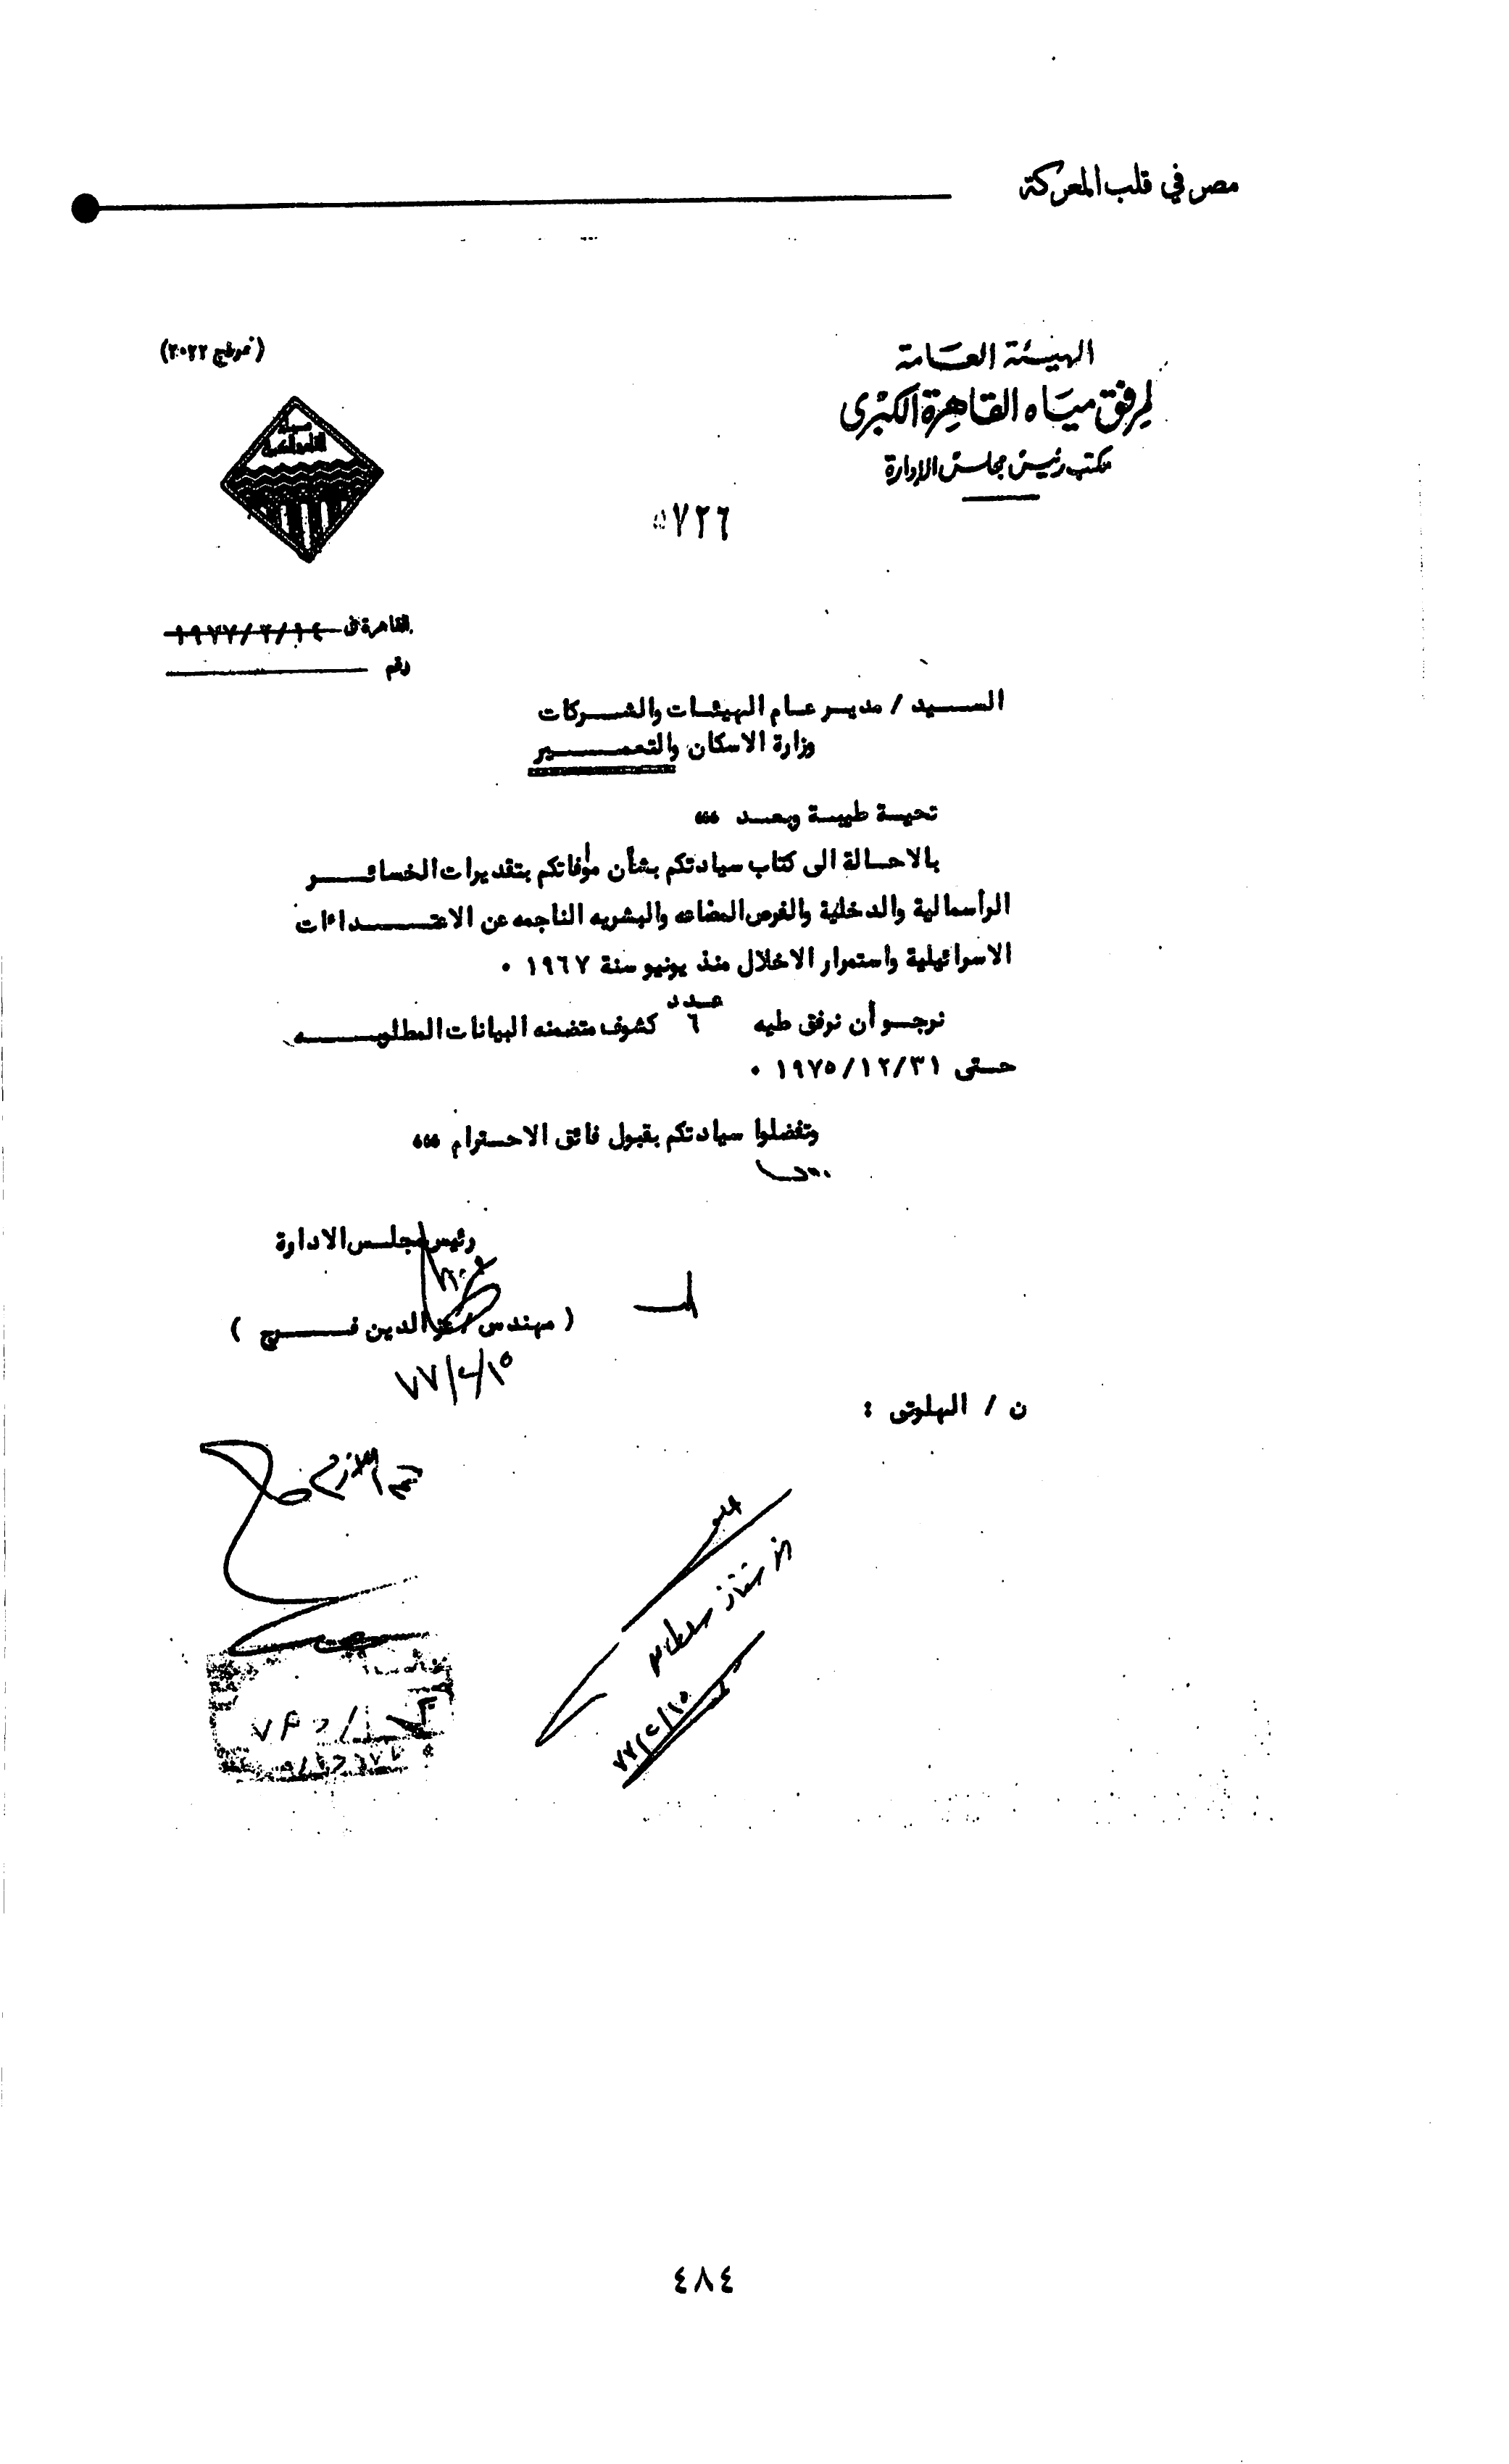 مصر في قلب المعركة
(نموذج ٢٠٢٢)
الهيئة العامة
لمرفق مياه القاهرة الكبرى
مكتب رئيس مجلس الإدارة
مياه
القاهرة الكبرى
٥٧٢٦
القاهرة في ١٩٧٧/٢/١٤
رقم
السيد / مدير عام الهيئات والشركات
وزارة الاسكان والتعمير
تحية طيبة وبعد ،،،
بالاحالة الى كتاب سيادتكم بشأن موأفاتكم بتقديرات الخسائر
الرأسمالية والدخلية والفرص المضاعه والبشريه الناجمه عن الاعتداءات
الاسرائيلية واستمرار الاخلال منذ يونيو سنة ١٩٦٧ ٠
نرجو أن نرفق طيه عدد ٦ كشوف متضمنه البيانات المطلوبه
حتى ١٩٧٥/١٢/٣١ ٠
وتفضلوا سيادتكم بقبول فائق الاحترام ،،،
رئيس مجلس الادارة
( مهندس / عز الدين فرج )
٧٧/٢/١٥
ن / البهلوتى :
اللازم
الأستاذ سلطان
٧٧/٢/١٥
٤٨٤